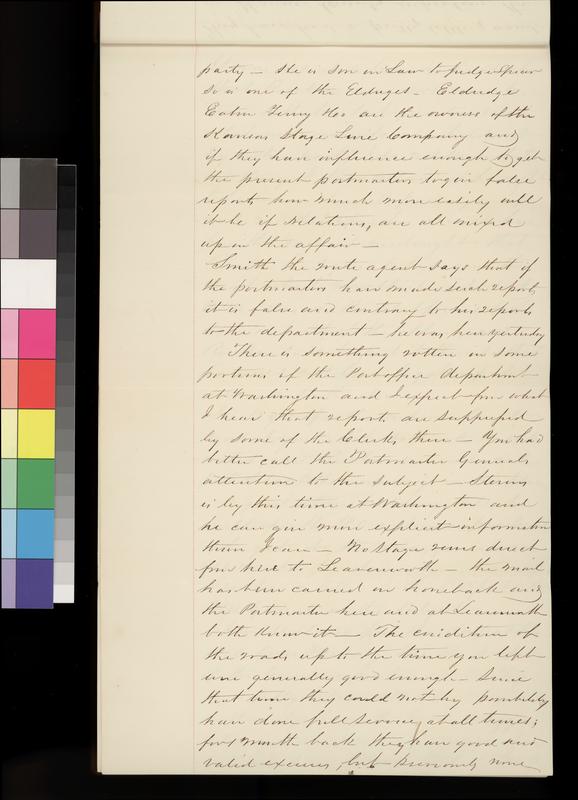 party — He is Son in Law to Judge Spear
So is one of the Eldriges — Eldridge
Eaton Terry &co are the owners of the
Kansas Stage Line Company and
if they have influence enough to get
the present postmasters to give false
reports how much more easily will
it be if relations, are all mixed
up in the affair —
Smith the route agent Says that if
the postmasters have made such report
it is false and contrary to his reports
to the department — he was here yesterday
There is something rotten in some
portions of the Post office department
at Washington and I expect from what
I hear that reports are suppressed
by some of the Clerks there — You had
better call the Postmaster Generals
attention to the subject — Stevens
is by this time at Washington and
he can give more explicit information
than I can — No Stage runs direct
from here to Leavenworth — the mail
has been carried on horseback and
the Postmaster here and at Leavenworth
both Know it — The condition of
the roads up to the time you left
were generally good enough — Since
that time they could not by possibility
have done full service at all times;
for 1 month back they have good and
valid excuses, but previously none